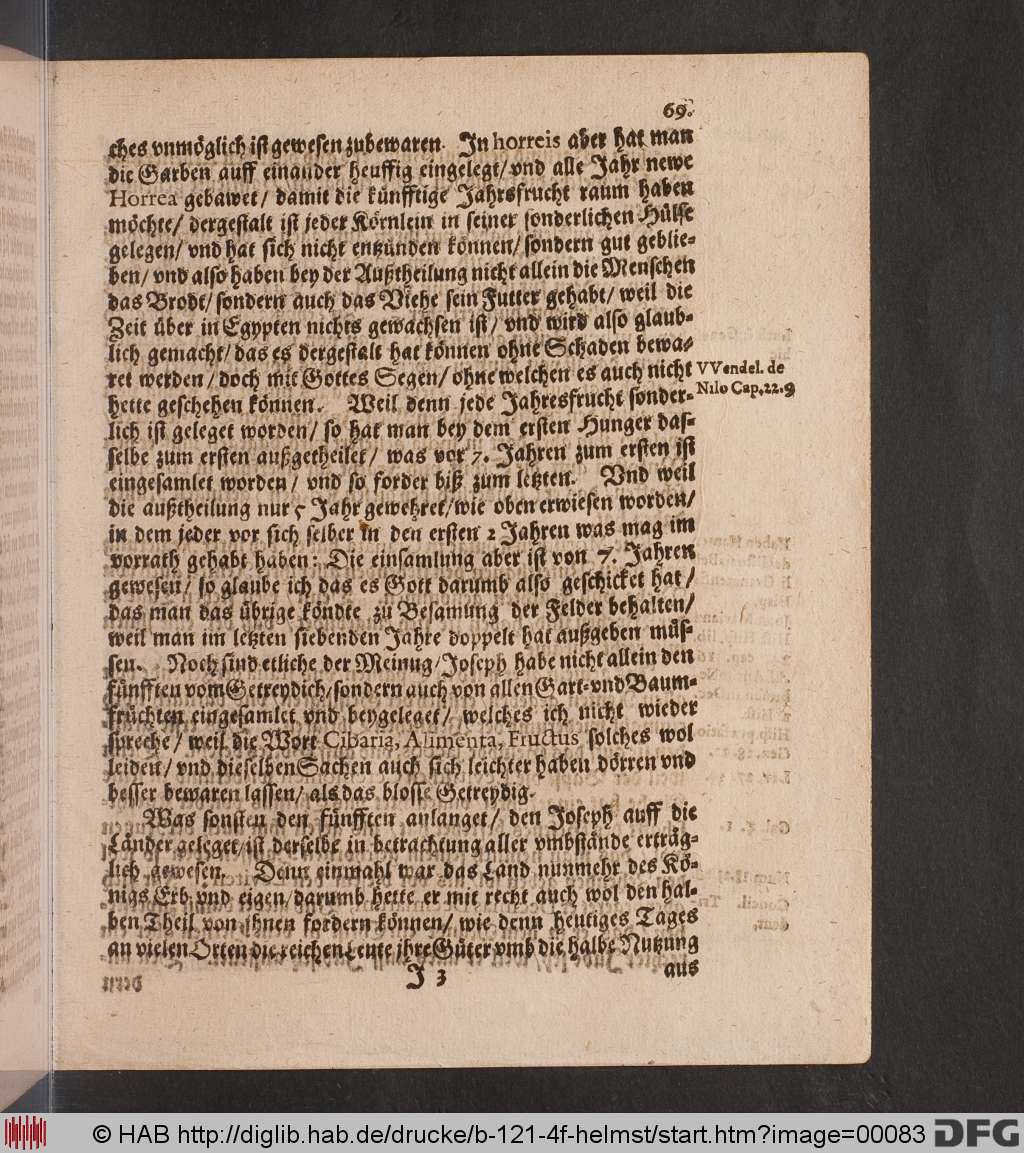 69.
ches vnmöglich ist gewesen zubewaren. In horreis aber hat man
die Garben auff einander heuffig eingelegt/ vnd alle Jahr newe
Horrea gebawet/ damit die künfftige Jahrsfrucht raum haben
möchte/ dergestalt ist jeder Körnlein in seiner sonderlichen Hülse
gelegen/ vnd hat sich nicht entzünden können/ sondern gut geblie-
ben/ vnd also haben bey der Außtheilung nicht allein die Menschen
das Brodt/ sondern auch das Viehe sein Futter gehabt/ weil die
Zeit über in Egypten nichts gewachsen ist/ vnd wird also glaub-
lich gemacht/ das es dergestalt hat können ohne Schaden bewa-
ret werden/ doch mit Gottes Segen/ ohne welchen es auch nicht
hette geschehen können. Weil denn jede Jahresfrucht sonder-
lich ist geleget worden/ so hat man bey dem ersten Hunger das-
selbe zum ersten außgetheilet/ was vor 7. Jahren zum ersten ist
eingesamlet worden/ vnd so forder biß zum letzten. Vnd weil
die außtheilung nur 5 Jahr gewehret/ wie oben erwiesen worden/
in dem jeder vor sich selber in den ersten 2 Jahren was mag im
vorrath gehabt haben: Die einsamlung aber ist von 7. Jahren
gewesen/ so glaube ich das es Gott darumb also geschicket hat/
das man das übrige köndte zu Besamung der Felder behalten/
weil man im letzten siebenden Jahre doppelt hat außgeben müs-
sen. Noch sind etliche der Meinug/ Joseph habe nicht allein den
fünfften vom Getreydich/ sondern auch von allen Gart- vnd Baum-
früchten eingesamlet vnd beygeleget/ welches ich nicht wieder
spreche/ weil die Wort Cibaria, Alimenta, Fructus solches wol
leiden/ vnd dieselben Sachen auch sich leichter haben dörren vnd
besser bewaren lassen/ als das blosse Getreydig.
Was sonsten den fünfften anlanget/ den Joseph auff die
Länder geleget/ ist derselbe in betrachtung aller vmbstände erträg-
lich gewesen. Denn einmahl war das Land nunmehr des Kö-
nigs Erb vnd eigen/ darumb hette er mit recht auch wol den hal-
ben Theil von ihnen fordern können/ wie denn heutiges Tages
an vielen Orten die reichen Leute jhre Güter vmb die halbe Nutzung
J 3
aus
VVendel. de
Nilo Cap. 22. 9
© HAB http://diglib.hab.de/drucke/b-121-4f-helmst/start.htm?image=00083
DFG